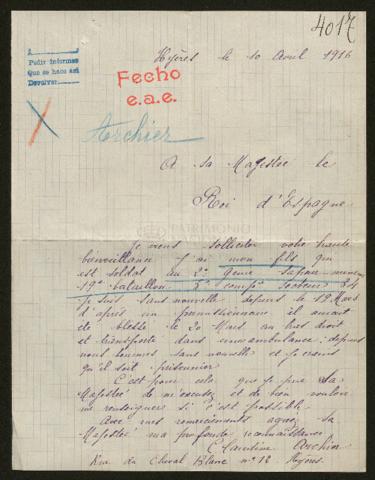 4017
Hyères le 10 Avril 1916
A
Pedir informes
Que se haco así
Devolver
Fecho
e.a.e.
Archier
A sa Majestée le
Roi d'Espagne
Je viens solliciter votre haute
bienveillance j'ai mon fils qui
est soldat au 2e Genie sapeur mineur
19e bataillon 5e compie secteur 34
je suis sans nouvelle depuis le 19 Mars
d'après un il aurait
de blessé le 20 Mars au bras droit
et transporté dans une ambulance depuis
nous sommes sans nouvelle et je crois
qu'il soit prisonnier
C'est pour cela que je prie Sa
Majestée de m'excuser et de bien vouloir
me renseigner si c'est possible
Avec mes remerciements agréez sa
Majestée ma profonde reconnaissance
Archier
Rue du Cheval Blanc no 12 Hyères